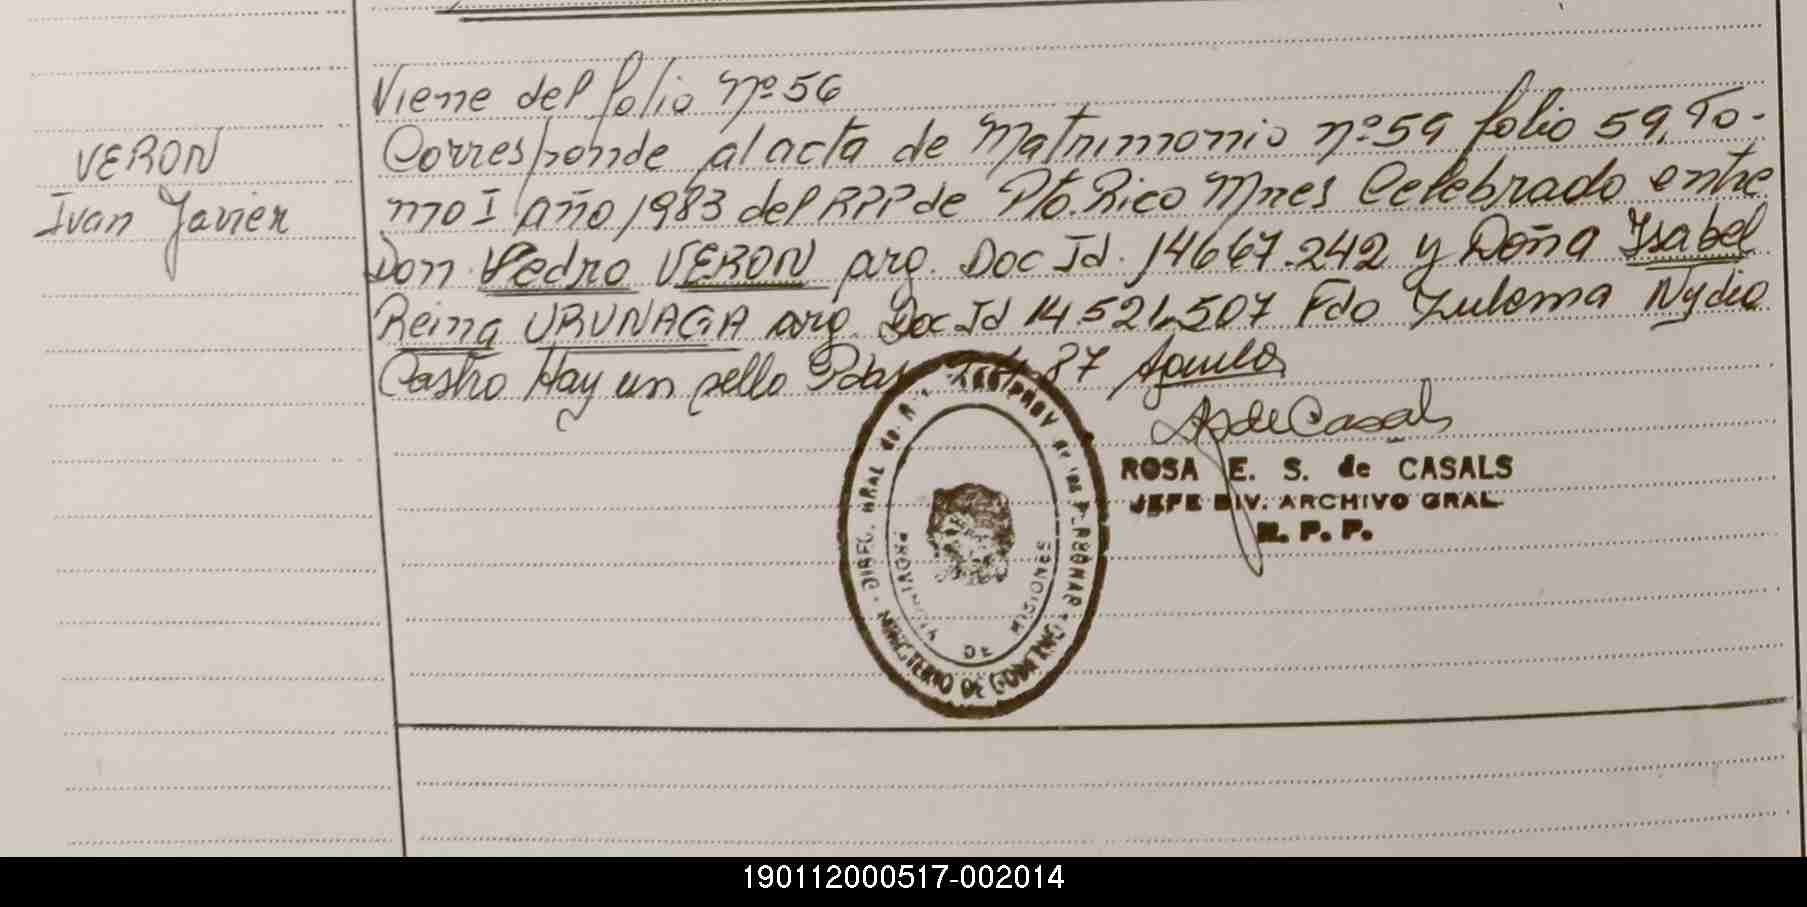 Viene del folio Nº 56
VERON
Ivan Javier
Corresponde al acta de Matrimonio nº 59 folio 59, To-
mo I año 1983 del RPP de Pto. Rico Mnes Celebrado entre
Don Pedro VERON arg. Doc Id. 14667.242 y Doña Isabel
Reina URUNAGA arg. Doc Id 14.521.507 Fdo Zulema Nydia
Castro Hay un sello Pdas 87
ROSA E. S. de CASALS
JEFE DIV. ARCHIVO GRAL.
R. P. P.
DIREC. GRAL de PROV de las PERSONAS
PROVINCIA DE MISIONES
MINISTERIO DE GOBIERNO
190112000517-002014